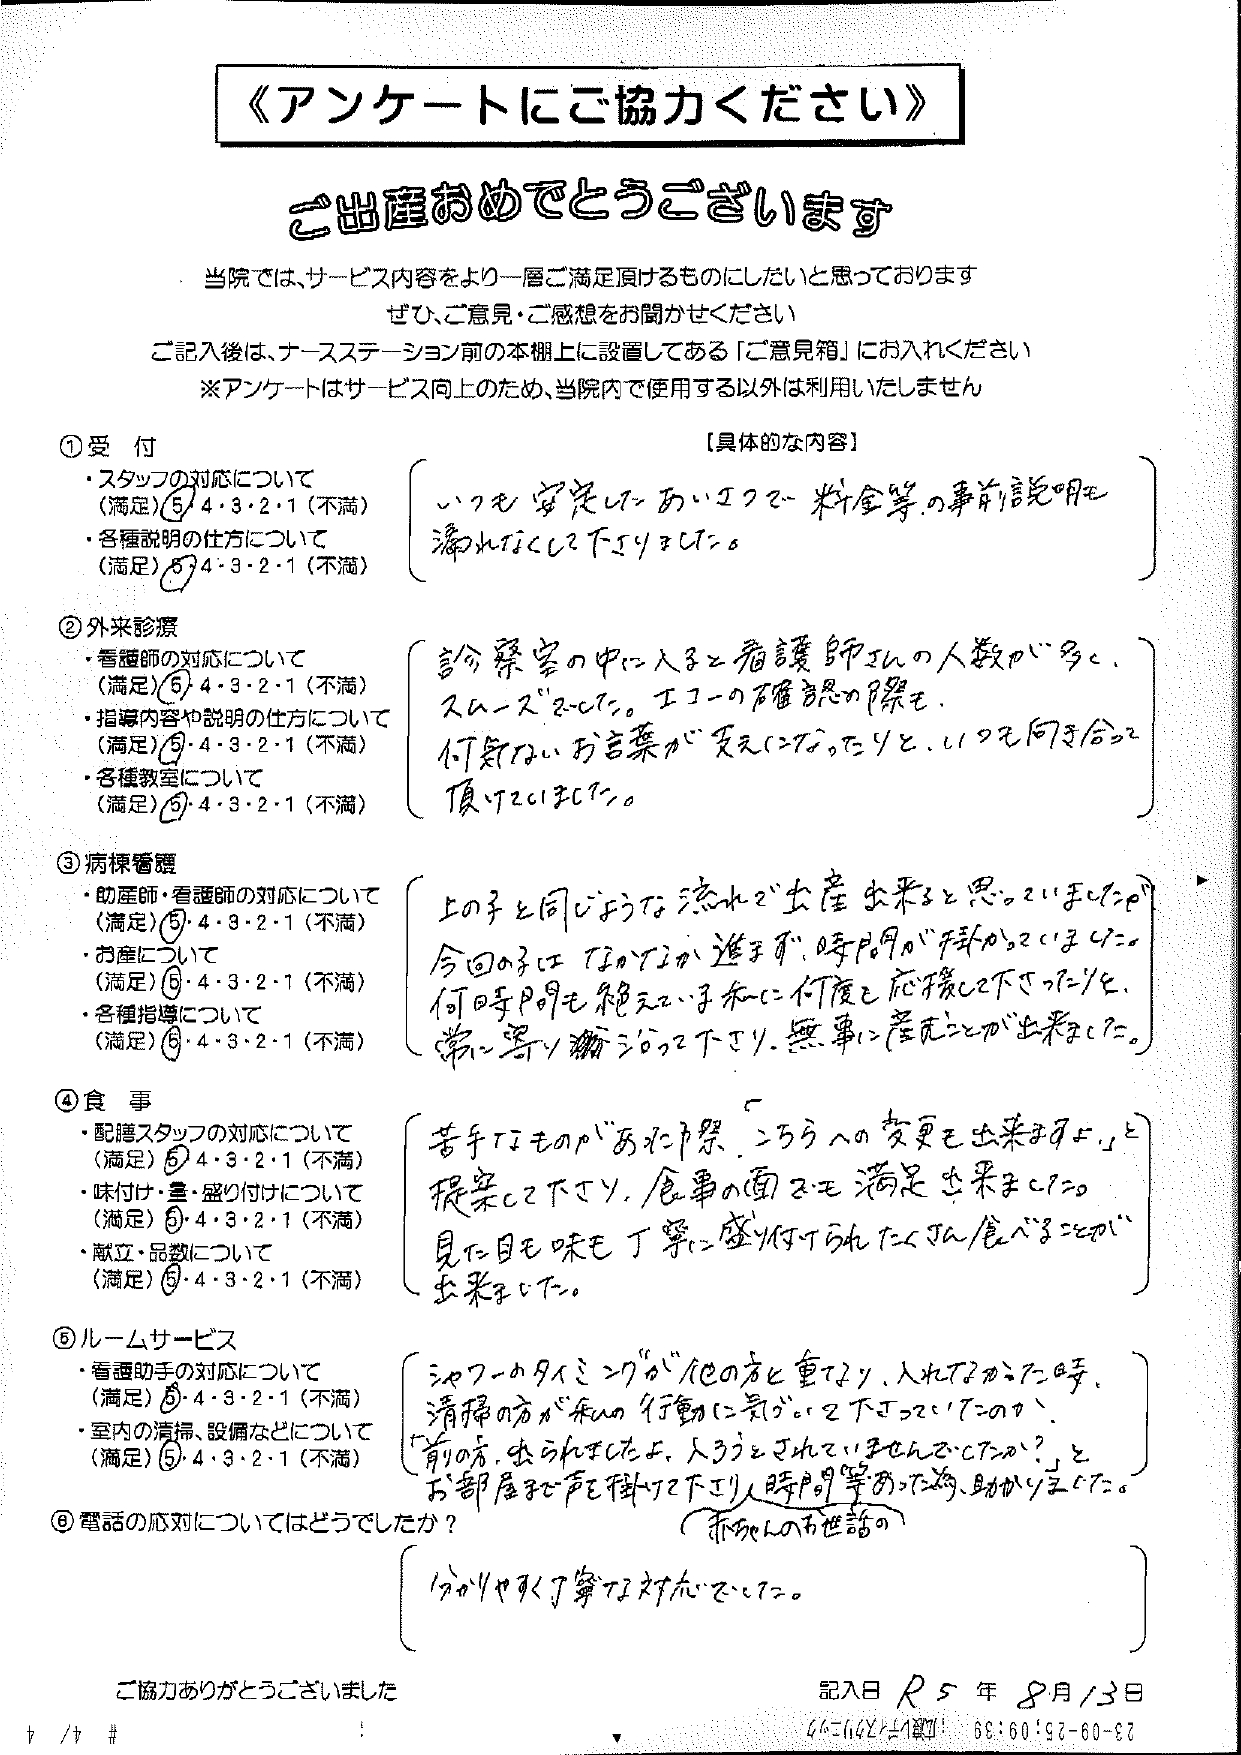 《アンケートにご協力ください》
ご出産おめでとうございます
当院では、サービス内容をより一層ご満足頂けるものにしたいと思っております
ぜひ、ご意見・ご感想をお聞かせください
ご記入後は、ナースステーション前の本棚上に設置してある「ご意見箱」にお入れください
※アンケートはサービス向上のため、当院内で使用する以外は利用いたしません
【具体的な内容】
①受　付
・スタッフの対応について
（満足）5・4・3・2・1（不満）
・各種説明の仕方について
（満足）5・4・3・2・1（不満）
いつも安定したあいさつで料金等の事前説明も
漏れなくして下さりました。
②外来診療
・看護師の対応について
（満足）5・4・3・2・1（不満）
・指導内容や説明の仕方について
（満足）5・4・3・2・1（不満）
・各種教室について
（満足）5・4・3・2・1（不満）
診察室の中に入ると看護師さんの人数が多く、
スムーズでした。エコーの確認の際も、
何気ないお言葉が支えになったりと、いつも向き合って
頂けていました。
③病棟看護
・助産師・看護師の対応について
（満足）5・4・3・2・1（不満）
・お産について
（満足）5・4・3・2・1（不満）
・各種指導について
（満足）5・4・3・2・1（不満）
上の子と同じような流れで出産出来ると思っていましたが
今回の子はなかなか進まず、時間が掛かっていました。
何時間も絶えている私に何度も応援して下さったりと、
常に寄り沿って下さり、無事に産むことが出来ました。
④食　事
・配膳スタッフの対応について
（満足）5・4・3・2・1（不満）
・味付け・量・盛り付けについて
（満足）5・4・3・2・1（不満）
・献立・品数について
（満足）5・4・3・2・1（不満）
苦手なものがあった際「こちらへの変更も出来ますよ。」と
提案して下さり、食事の面でも満足出来ました。
見た目も味も丁寧に盛り付けられたくさん食べることが
出来ました。
⑤ルームサービス
・看護助手の対応について
（満足）5・4・3・2・1（不満）
・室内の清掃、設備などについて
（満足）5・4・3・2・1（不満）
シャワーのタイミングが他の方と重なり、入れなかった時、
清掃の方が私の行動に気づいて下さっていたのか、
「前の方、出られましたよ。入ろうとされていませんでしたか？」と
お部屋まで声を掛けて下さり、時間等あった為、助かりました。
（赤ちゃんのお世話の）
⑥電話の応対についてはどうでしたか？
分かりやすく丁寧な対応でした。
ご協力ありがとうございました
記入日 R5年 8月13日
23-09-25;09:39 ;広瀬レディスクリニック
# 4/ 4